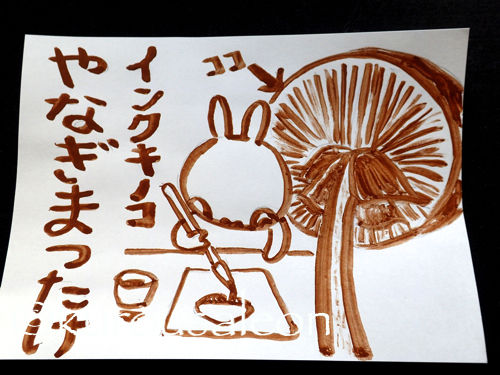 ココ
インクキノコ
やなぎまつたけ